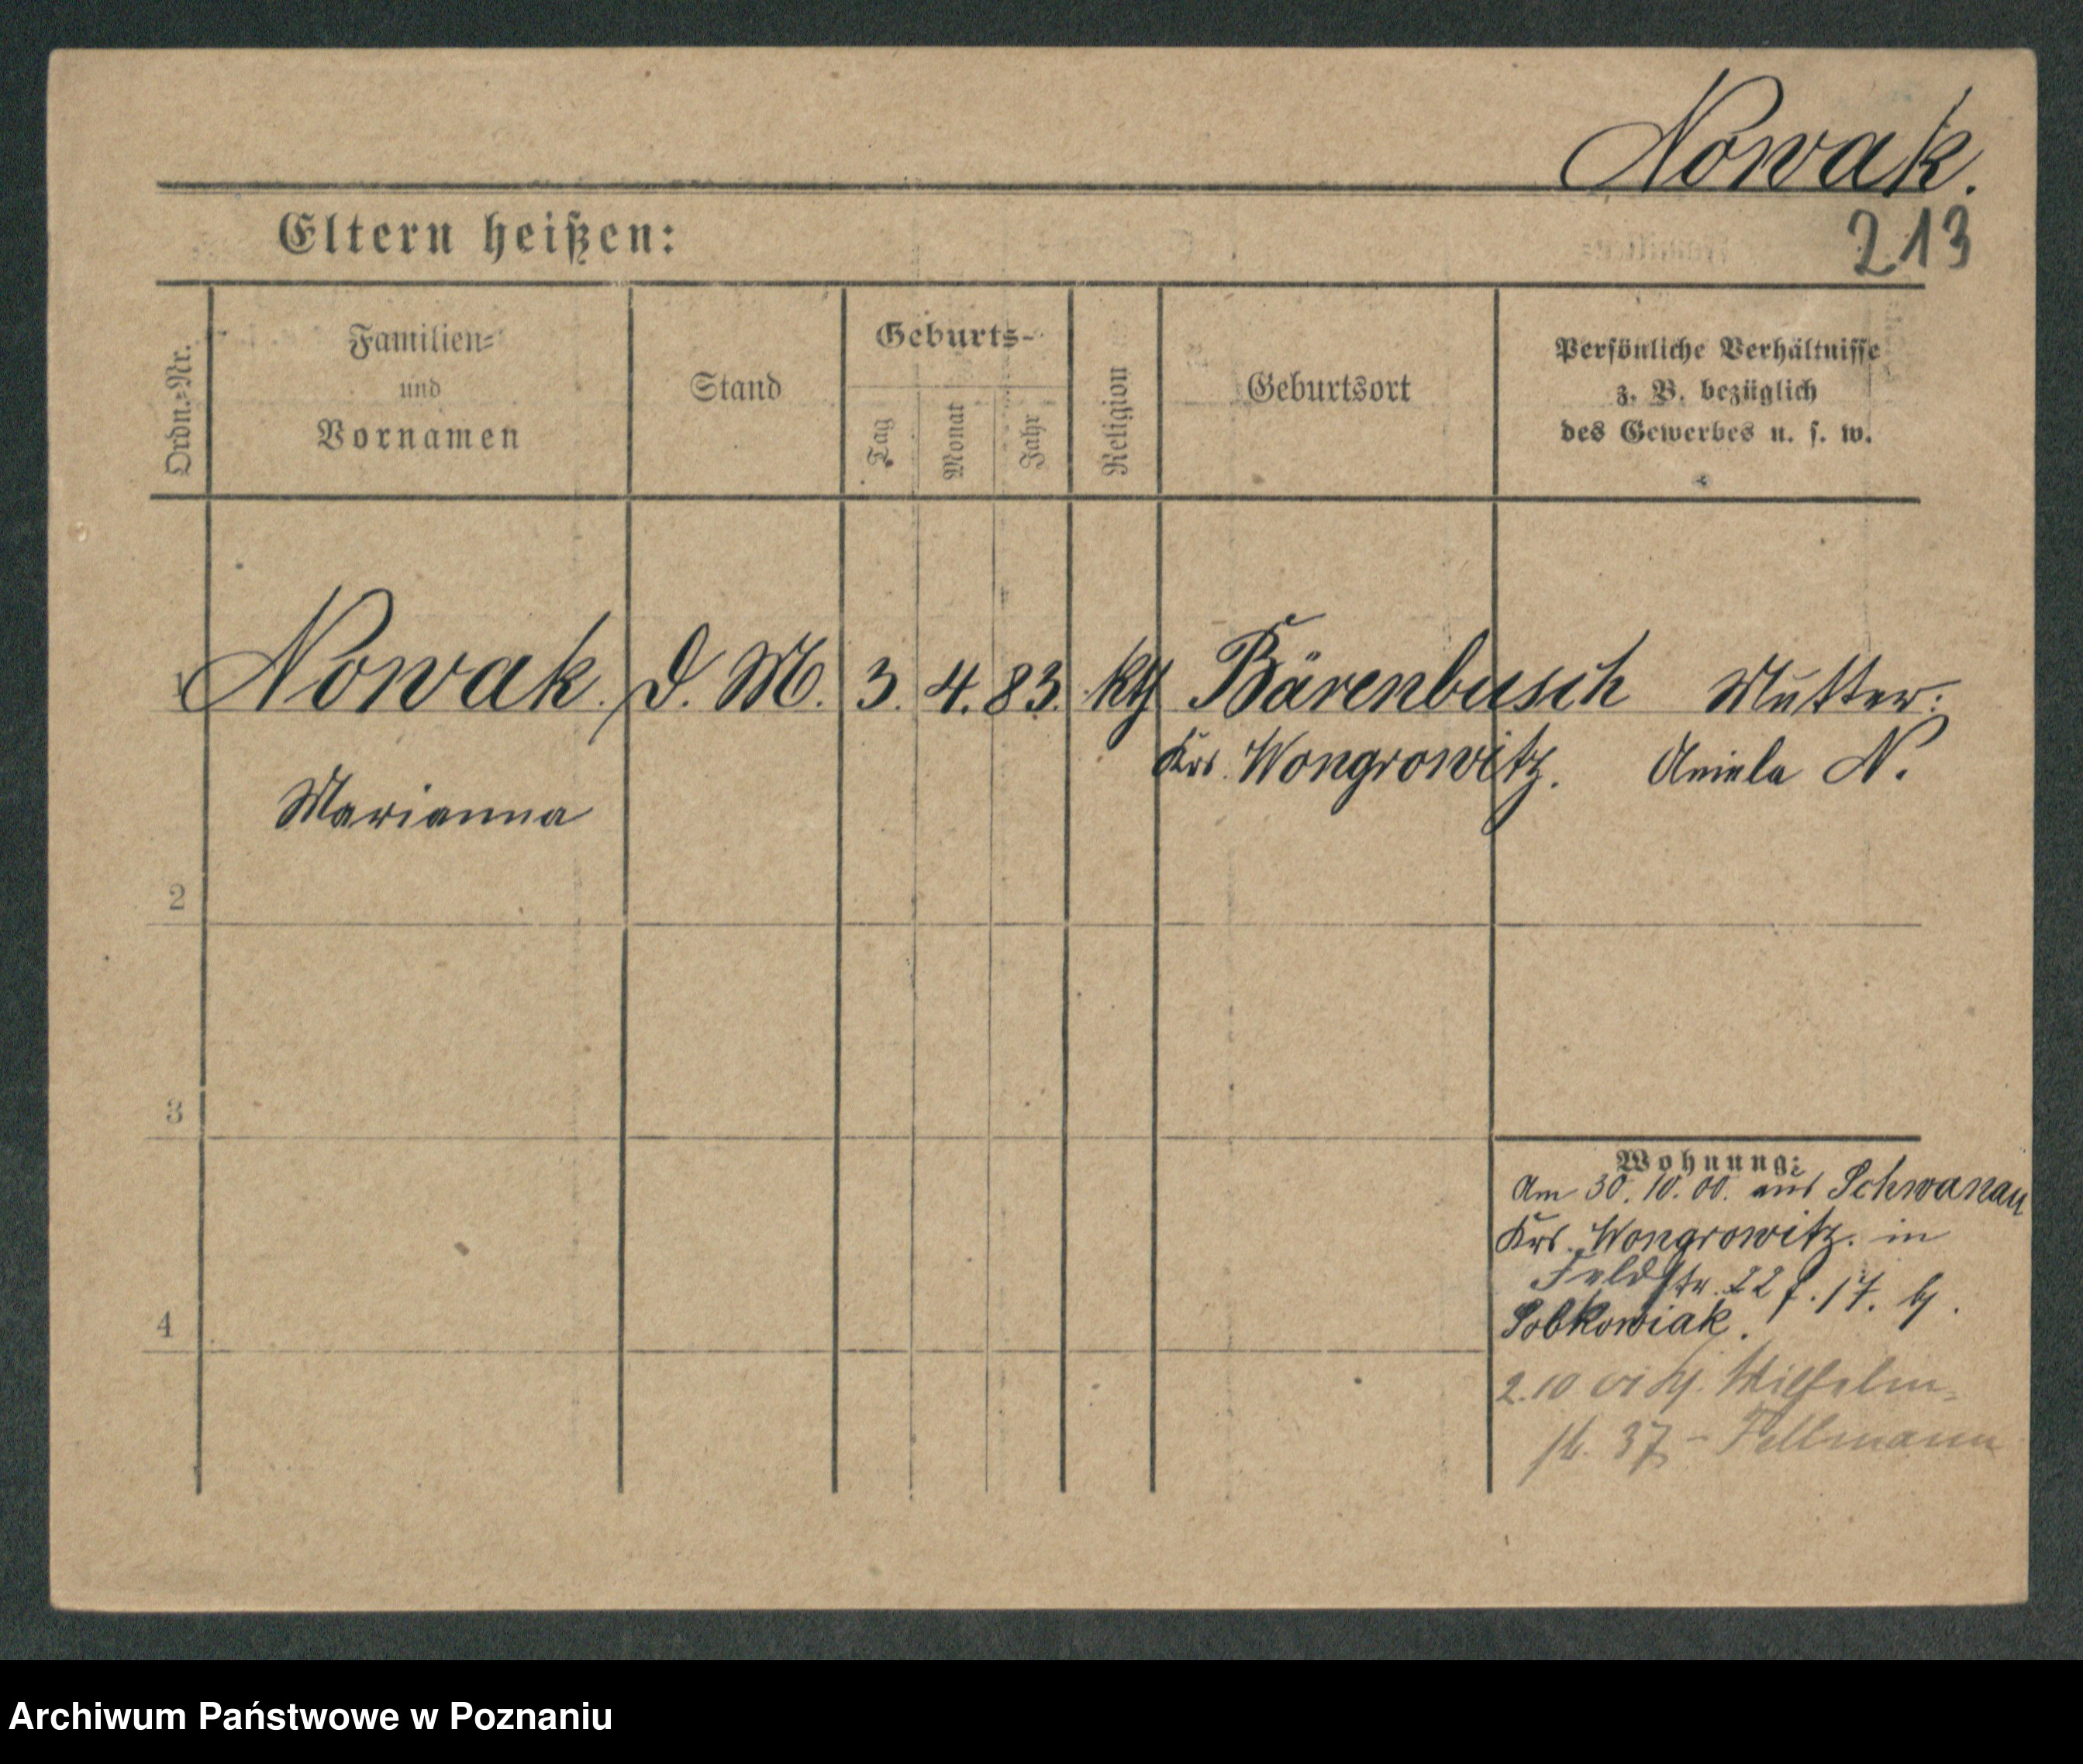 Nowak.
213
Eltern heißen:
Ordn.-Nr.
Familien-
und
Vornamen
Stand
Geburts-
Tag
Monat
Jahr
Religion
Geburtsort
Persönliche Verhältnisse
z. B. bezüglich
des Gewerbes u. s. w.
1 Nowak. D. M. 3. 4. 83. kth Bärenbusch Mutter:
Krs. Wongrowitz. Aniela N.
Marianna
2
3
4
Wohnung:
Am 30. 10. 00. aus Schwanau
Krs. Wongrowitz. in
Feldstr. 22 17. b/
Sobkowiak.
2.10 Wilhelm-
st. 37 -
Archiwum Państwowe w Poznaniu